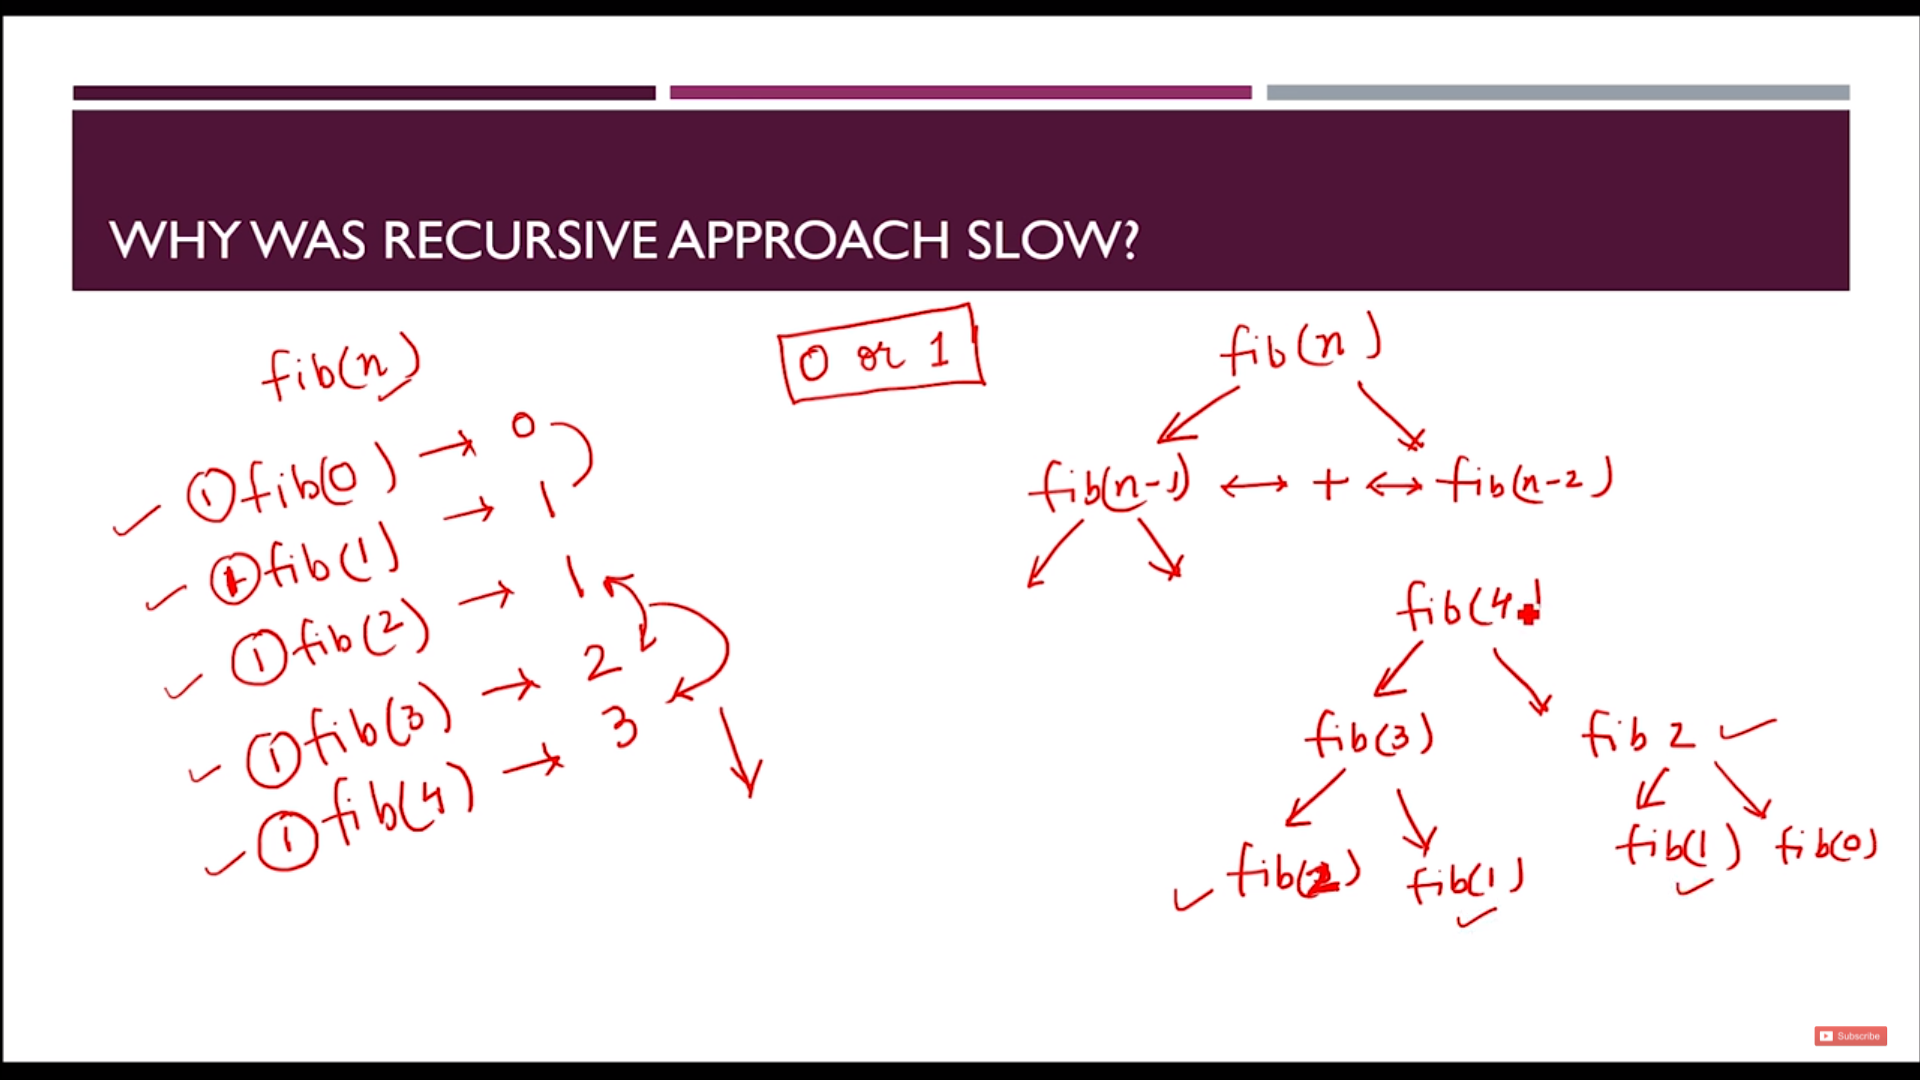 WHY WAS RECURSIVE APPROACH SLOW?
fib(n)
① fib(0) → 0
① fib(1) → 1
① fib(2) → 1
① fib(3) → 2
① fib(4) → 3
0 or 1
fib(n)
fib(n-1) ↔ + ↔ fib(n-2)
fib(4)
fib(3) fib 2
fib(2) fib(1) fib(1) fib(0)
Subscribe